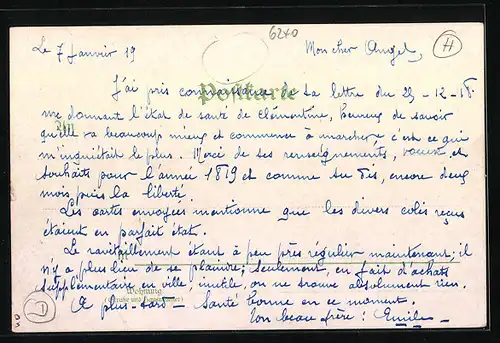 6240
Le 7 Janvier 19 Mon cher Angel, H
J'ai pris connaissance de ta lettre du 29-12-18
Postkarte
me donnant l'état de santé de Clémentine, heureux de savoir
qu'elle va beaucoup mieux et commence à marcher, c'est ce qui
An
m'inquiétait le plus. Merci de tes renseignements, voeux et
souhaits pour l'année 1819 et comme tu dis, encore deux
mois puis la liberté.
Les cartes envoyées mentionne que les divers colis reçus
étaient en parfait état.
Le ravitaillement étant à peu près régulier maintenant, il
n'y a plus lieu de se plaindre; seulement, en fait d'achats
supplémentaire en ville, inutile, on ne trouve absolument rien.
Wohnung
(Straße und Hausnummer)
A plus tard - Santé bonne en ce moment.
Ton beau frère : Emile
D